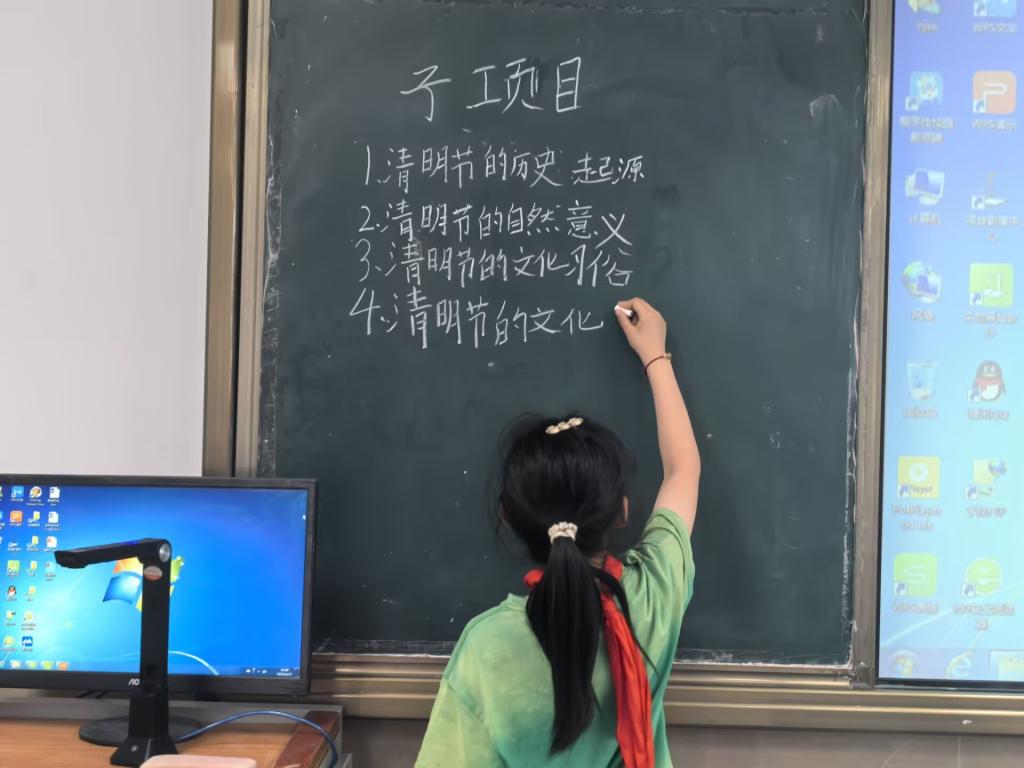 子项目
1.清明节的历史起源
2.清明节的自然意义
3.清明节的文化习俗
4.清明节的文化
WPS文字
WPS演示
计算机
网络
PotPlayer
AOC